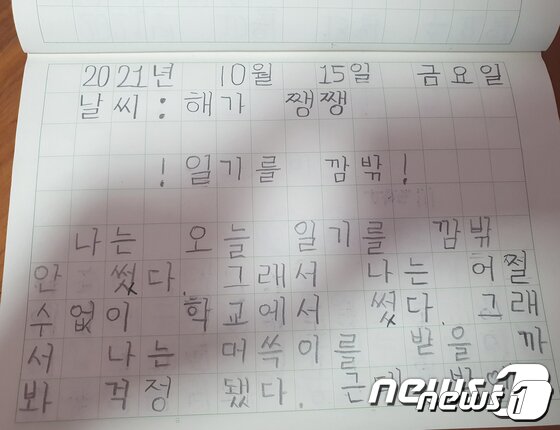 2021년 10월 15일 금요일
날씨:해가 쨍쨍
!일기를 깜밖!
나는 오늘 일기를 깜밖
안 썼다. 그래서 나는 어쩔
수없이 학교에서 썼다. 그래
서 나는 대쓱이를 받을 까
봐 걱정 됐다.
news1
news1